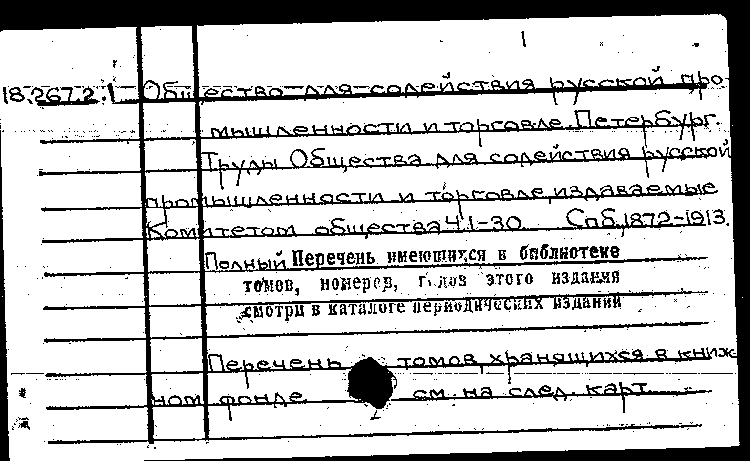 1
18.267.2.1 Общество для содействия русской про-
мышленности и торговле. Петербург.
Труды Общества для содействия русской
промышленности и торговле, издаваемые
Комитетом общества Ч.1-30. Спб., 1872-1913.
Полный Перечень имеющихся в библиотеке
томов, номеров, годов этого издания
смотри в каталоге периодических изданий
Перечень томов, хранящихся в книж
ном фонде см. на след. карт.